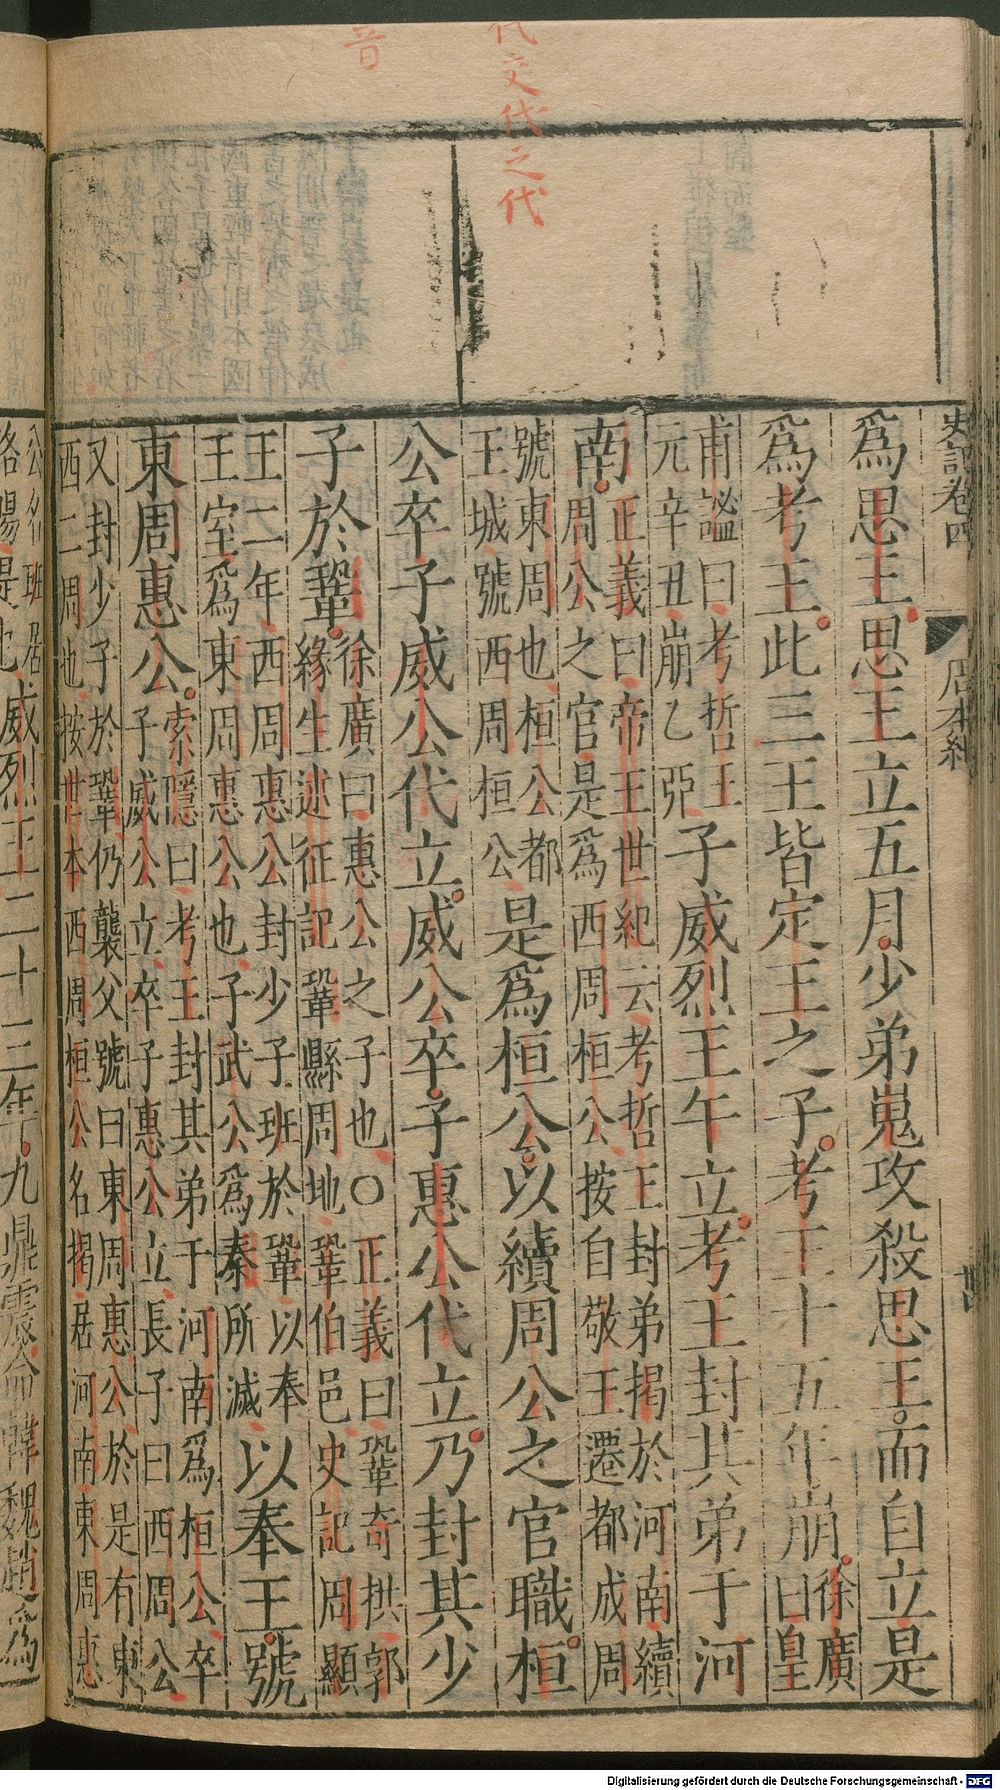 代交代之代
音
史記卷四 周本紀
爲思王思王立五月少弟嵬攻殺思王而自立是
爲考王此三王皆定王之子考王十五年崩徐廣
曰皇
甫謐曰考哲王
元辛丑崩乙亞
子威烈王午立考王封其弟于河
南正義曰帝王世紀云考哲王封弟揭於河南續
周公之官是爲西周桓公按自敬王遷都成周
號東周也桓公都
王城號西周桓公
是爲桓公以續周公之官職桓
公卒子威公代立威公卒子惠公代立乃封其少
子於鞏徐廣曰惠公之子也〇正義曰鞏奇拱郭
緣生述征記鞏縣周地鞏伯邑史記周顯
王二年西周惠公封少子班於鞏以奉
王室爲東周惠公也子武公爲秦所滅
以奉王號
東周惠公索隱曰考王封其弟于河南爲桓公卒
子威公立卒子惠公立長子曰西周公
又封少子於鞏仍襲父號曰東周惠公於是有東
西二周也按世本西周桓公名揭居河南東周惠
公名班居
洛陽是也
威烈王二十三年九鼎震命韓魏趙爲
Digitalisierung gefördert durch die Deutsche Forschungsgemeinschaft - DFG